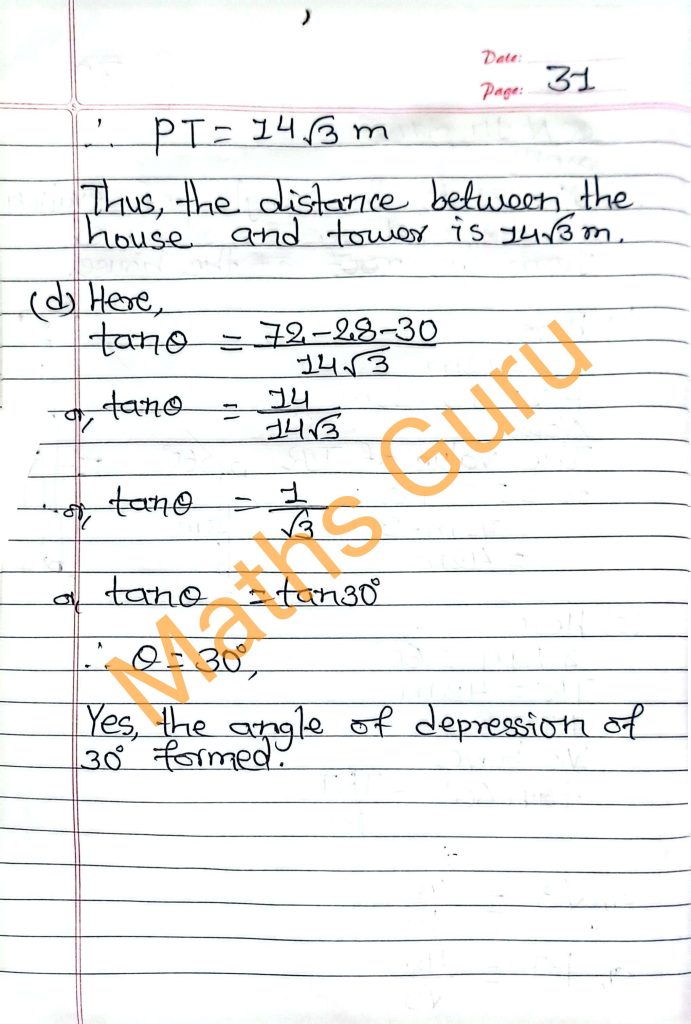 Date:
Page: 31
∴ PT = 14√3 m
Thus, the distance between the
house and tower is 14√3 m.
(d) Here,
tanθ = 72-28-30 / 14√3
or, tanθ = 14 / 14√3
or, tanθ = 1 / √3
or, tanθ = tan30°
∴ θ = 30°,
Yes, the angle of depression of
30° formed.
Maths Guru